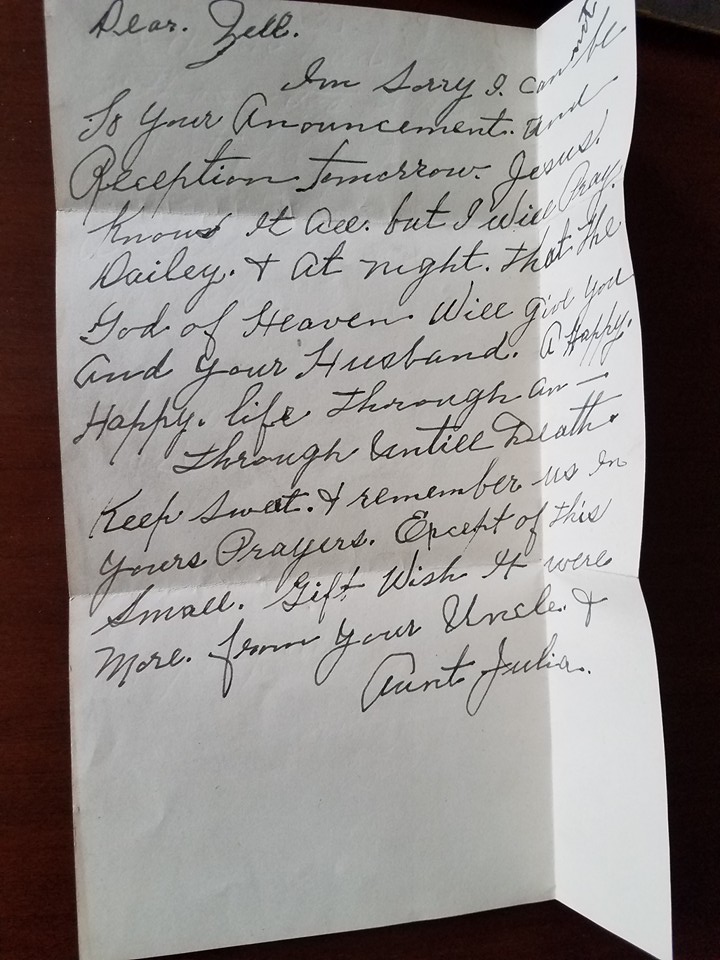 Dear. Zell.
Im Sorry I. can not be
To Your Anouncement. and
Reception Tomorrow. Jesus!
Knows It All. but I Will Pray.
Dailey. & At night. That The
God of Heaven Will give you
And Your Husband. A Happy.
Happy. life Through an —
Through Untill Death.
Keep Sweet. & remember us In
Yours Prayers. Except of this
Small. Gift Wish It were
More. from Your Uncle. &
Aunt Julia.